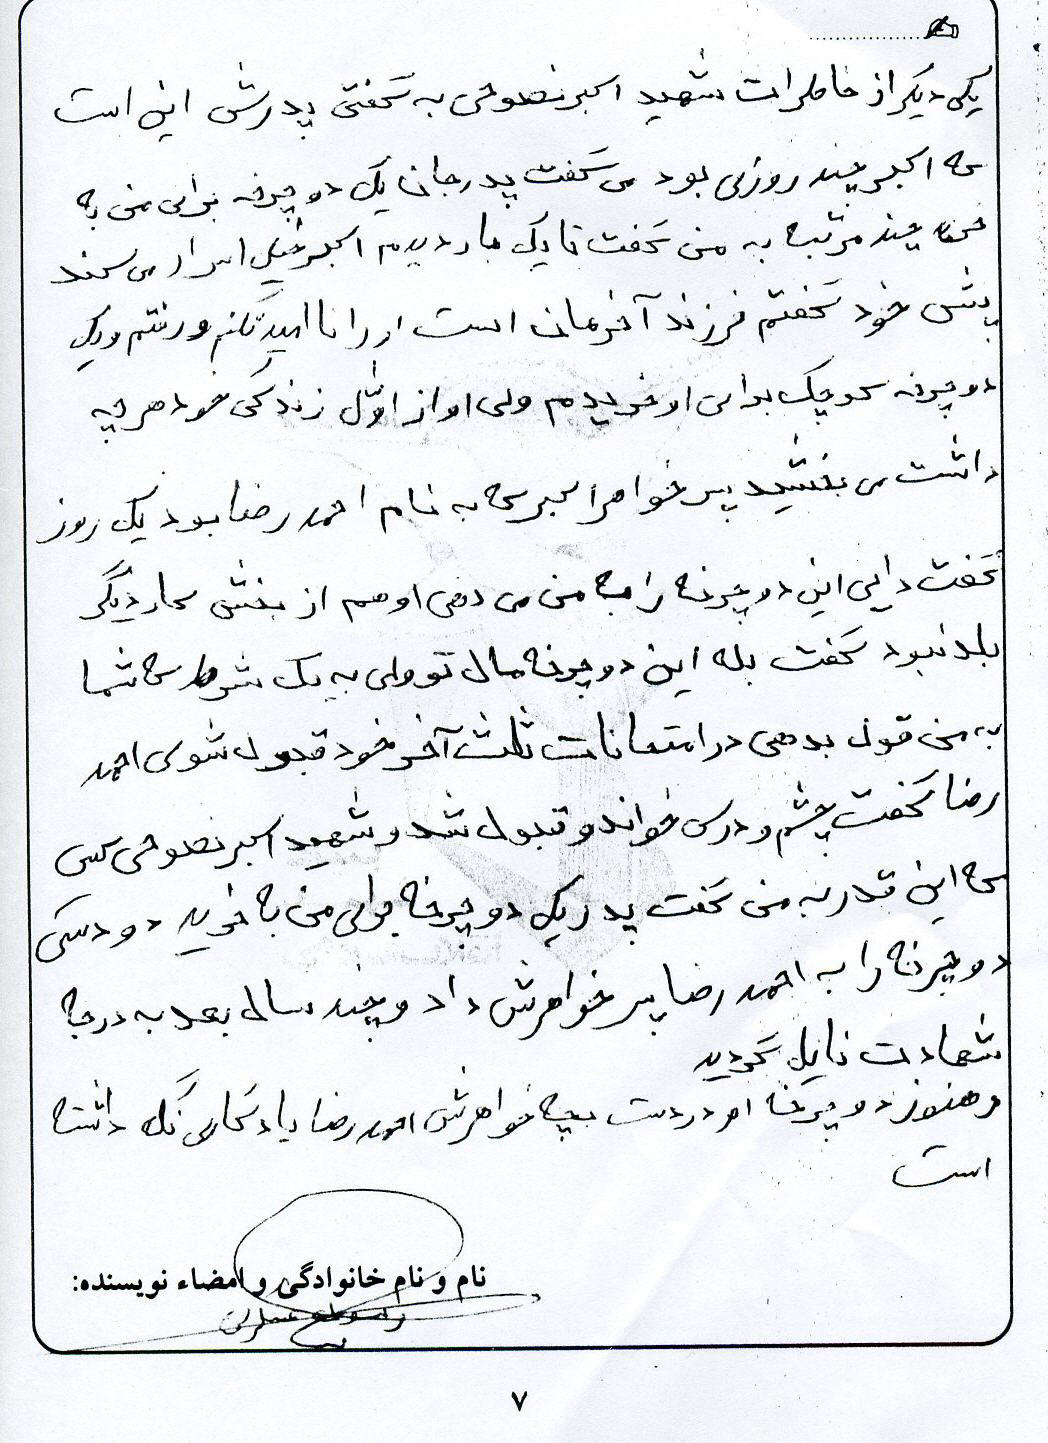 یکی دیگر از خاطرات شهید اکبر نصوحی به گفتی پدرش این است
که اکبر چند روزی بود می گفت پدر جان یک دوچرخه برای من به
خر چند مرتبه به من گفت تا یک بار دیدم اکبر خیلی اسرار می کند
پیش خود گفتم فرزند آخرمان است او را نا امید نکنم و رفتم و یک
دوچرخه کوچک برای او خریدم ولی او از اوّل زندگی خود هر چه
داشت می بخشید پسر خواهر اکبر که به نام احمد رضا بود یک روز
گفت دایی این دوچرخه را به من می دهی او هم از بخشش کار دیگر
بلد نبود گفت بله این دوچرخه مال تو ولی به یک شرط که شما
به من قول بدهی در امتحانات ثلث آخر خود قبول شوی احمد
رضا گفت چشم و درس خواند و قبول شد و شهید اکبر نصوحی کسی
که این قدر به من گفت پدر یک دوچرخه برای من به خرید
دوچرخه را به احمد رضا پسر خواهرش داد و چند سالی بعد به درجه
شهادت نایل گردید
و هنوز دوچرخه او در دست بچه خواهرش احمد رضا یادگاری نگه داشته
است
نام و نام خانوادگی و امضاء نویسنده:
۷